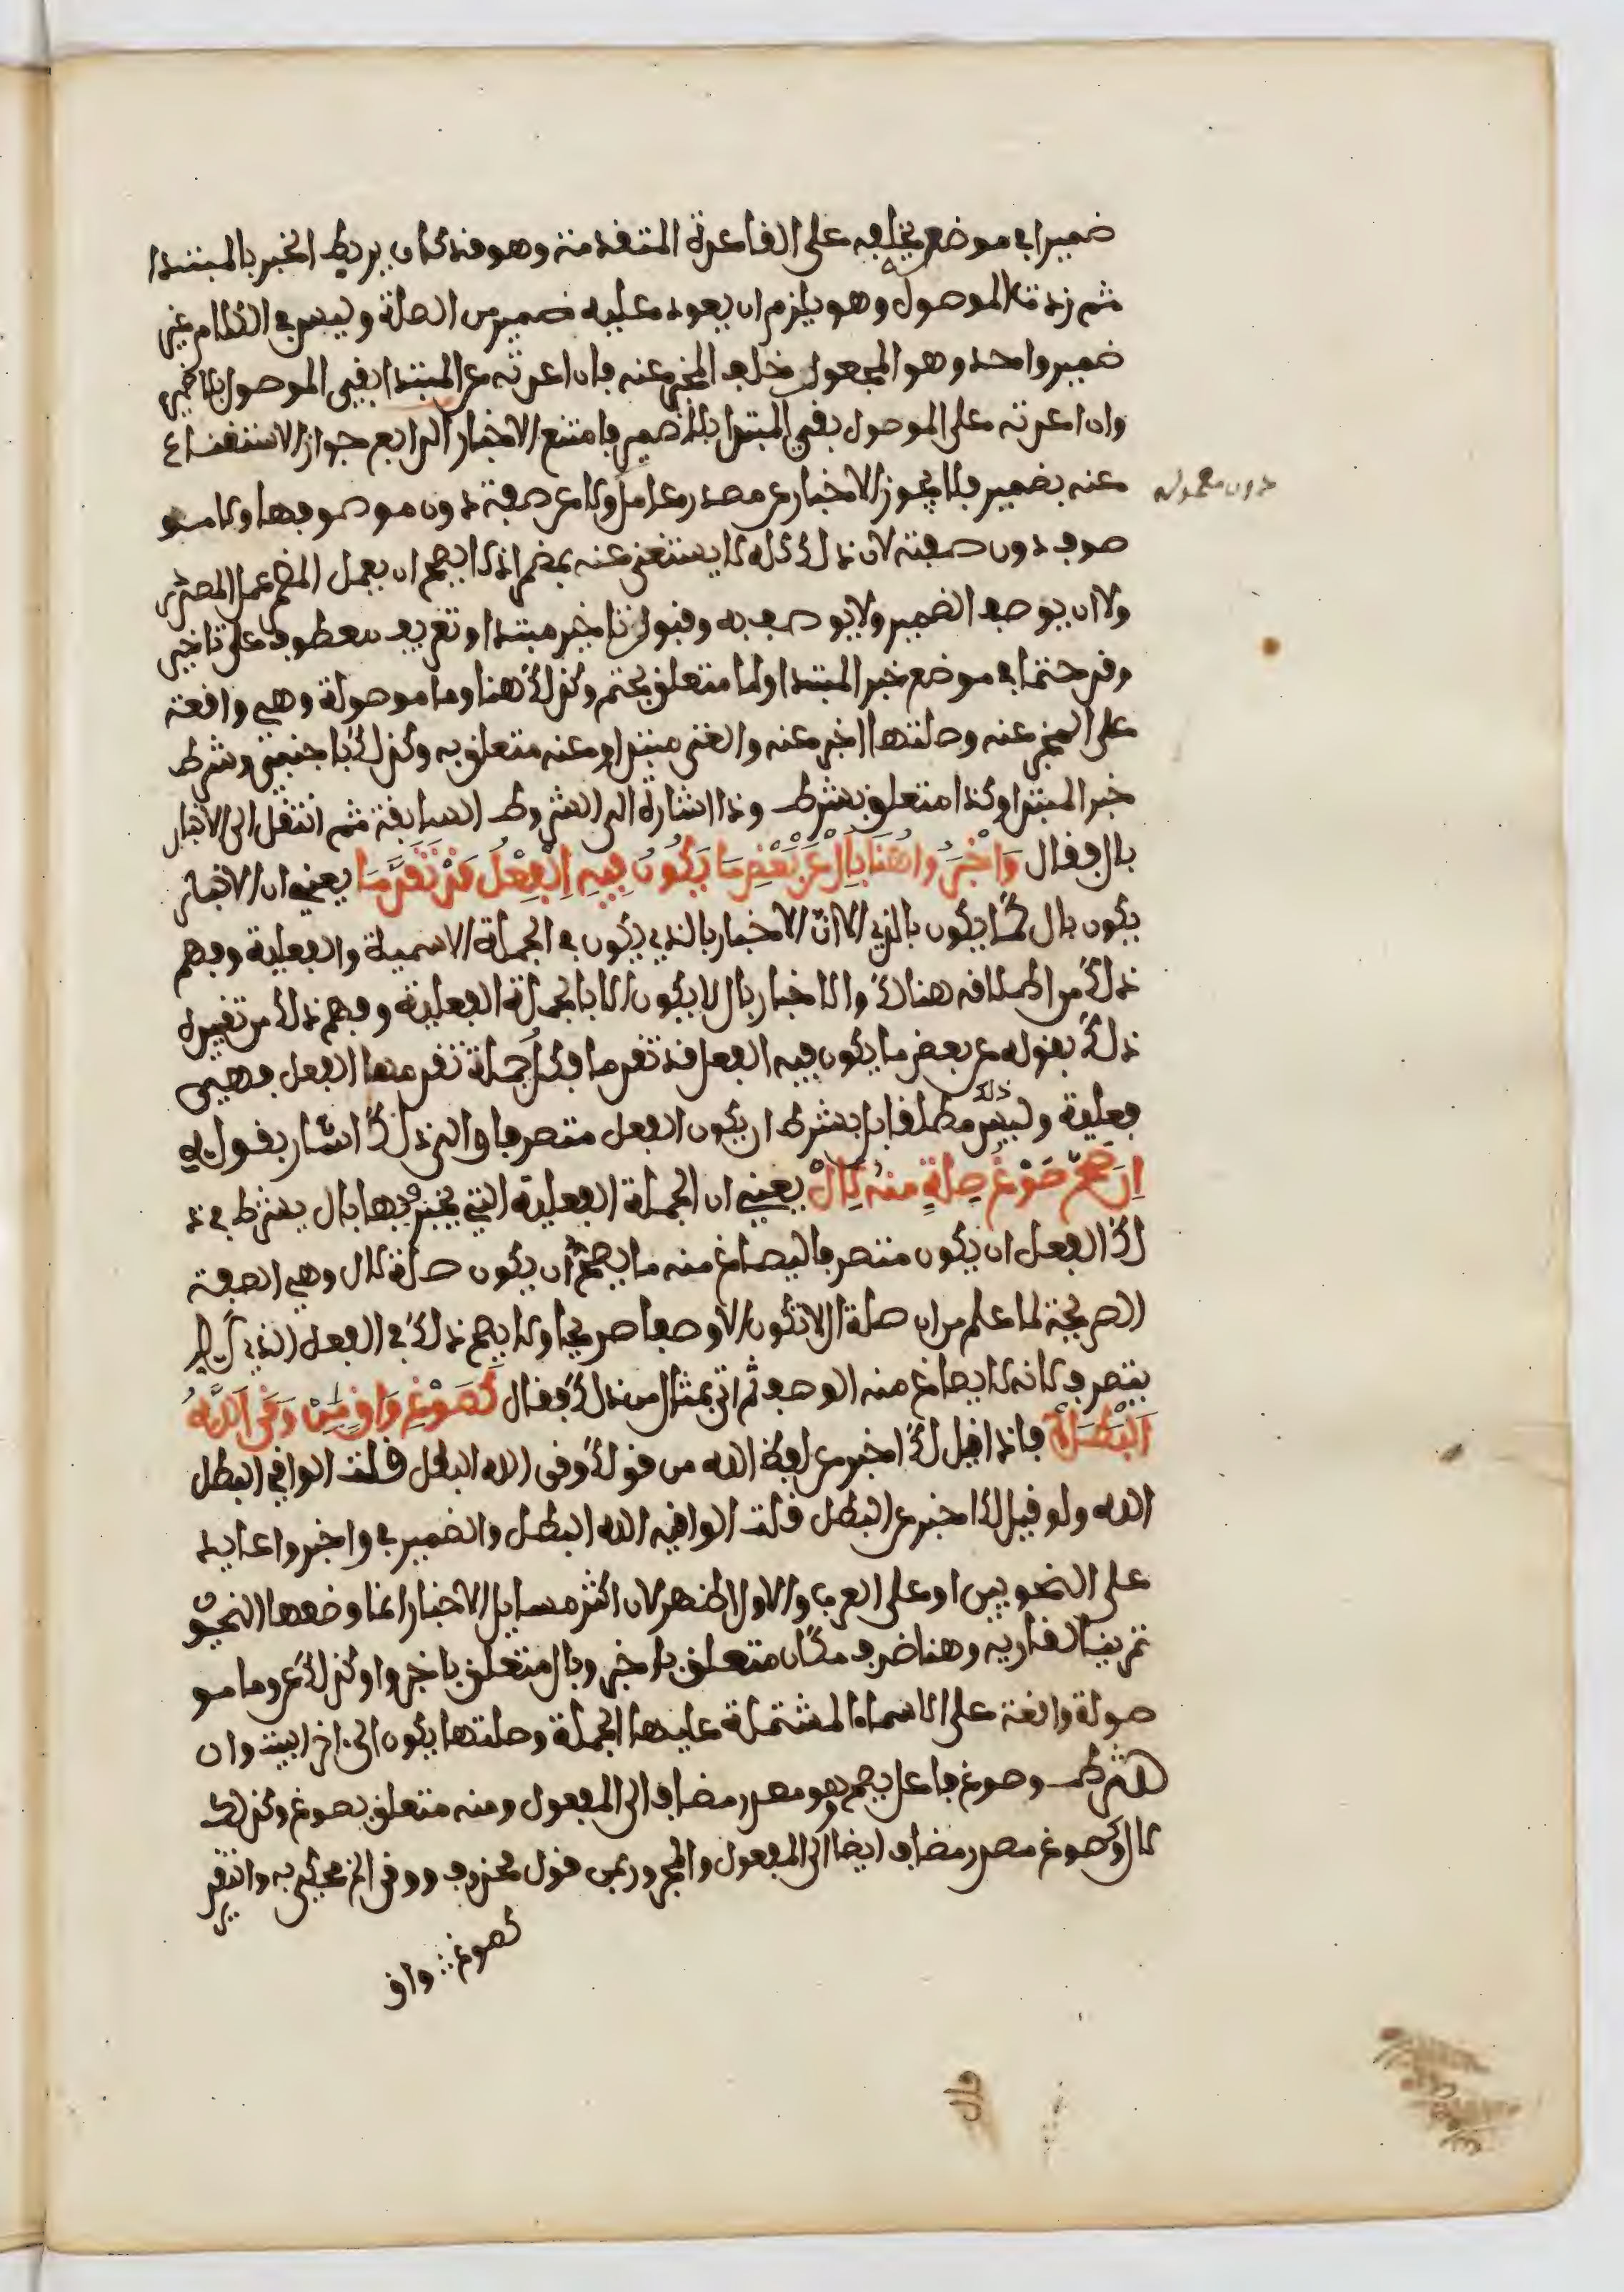 ضميرا في موضع يخلفه على القاعدة المتقدمة وهو قد كان يربط الخبر بالمبتدا
ثم زدت الموصول وهو يلزم ان يعود عليه ضمير من الصلة وليس في الكلام غير
ضمير واحد وهو المجعول خلف المخبر عنه فان اعدته على المبتدا بقي الموصول بلا ضمير
وان اعدته على الموصول بقي المبتدا بلا ضمير فامتنع الاخبار الرابع جواز الاستغناء
عنه بضمير فلا يجوز الاخبار عن مصدر عامل ولا عن صفة دون موصوفها ولا مو
دون معموله
صوف دون صفته لان ذلك كله لا يستغنى عنه بمضمر اذ لا يصح ان يعمل المضمر عمل المصدر
ولا ان يوصف الضمير ولا يوصف به وقبول تاخير مبتدا وتعريف معطوف على تاخير
وقد حتما في موضع خبر المبتدا ولما متعلق بحتم وكذلك هنا وما موصولة وهي واقعة
على المخبر عنه وصلتها اخبر عنه والغنى مبتدا وعنه متعلق به وكذلك باجنبي وشرط
خبر المبتدا وكذا متعلق بشرط وذا اشارة الى الشروط السابقة ثم انتقل الى الاخبار
بال فقال وَاَخْبَرُوا هُنَا بِاَلْ عَنْ بَعْضِ مَا يَكُونُ فِيهِ اِلْفِعْلُ قَدْ تَقَدَّمَا يعني ان الاخبار
يكون بال كما يكون بالذي الا ان الاخبار بالذي يكون في الجملة الاسمية والفعلية وفهم
ذلك من اطلاقه هنالك والاخبار بال لا يكون الا بالجملة الفعلية وفهم ذلك من تقييده
ذلك بقوله عن بعض ما يكون فيه الفعل قد تقدما وكل جملة تقدم منها الفعل فهي
فعلية وليس ذلك مطلقا بل بشرط ان يكون الفعل متصرفا والى ذلك اشار بقوله
اِن صَحَّ صَوْغُ صِلَةٍ مِنْهُ لِاَلْ يعني ان الجملة الفعلية التي يخبر فيها بال يشترط في ذ
لك الفعل ان يكون متصرفا ليصاغ منه ما يصح ان يكون صلة لال وهي الصفة
الصريحة لما علم من ان صلة ال لا تكون الا وصفا صريحا ولا يصح ذلك في الفعل الذي لا
يتصرف لانه لا يصاغ منه الوصف ثم اتى بمثال من ذلك فقال كَصَوْغِ وَاقٍ مِنْ وَقَى اَللَّهُ
اَلْبَطَلْ فاذا قيل لك اخبر عن لفظ الله من قولك وقى الله البطل قلت الواقي البطل
الله ولو قيل لك اخبر عن البطل قلت الواقيه الله البطل والضمير في واخبروا عايد
على النحويين او على العرب والاول اظهر لان اكثر مسايل الاخبار انما وضعها النحيو
تمرينا لقاريه وهنا ضرف مكان متعلق باخبر وبال متعلق باخبروا وكذلك عن وما مو
صولة واقعة على الاسماء المشتملة عليها الجملة وصلتها يكون الى اخر البيت وان
شرط وصوغ فاعل يصح وهو مصدر مضاف الى المفعول ومنه متعلق بصوغ وكذلك
لال وكصوغ مصدر مضاف ايضا الى المفعول والمجرور بمن قول محذوف ووقى الخ محكي به والتقدير
كصوغ واق
قال